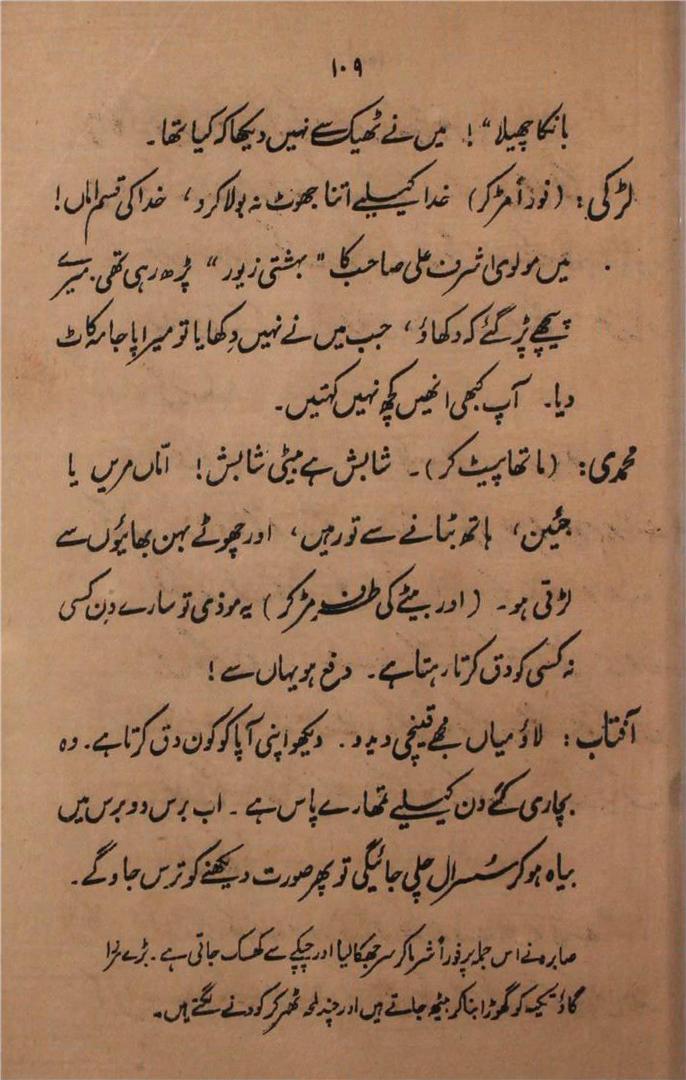 ۱۰۹
بانکا چھیلا“! میں نے ٹھیک سے نہیں دیکھا کہ کیا تھا۔
لڑکی: (فوراً مڑ کر) خدا کیلیے اتنا جھوٹ نہ بولا کرو، خدا کی قسم اماں!
میں مولوی اشرف علی صاحب کا "بہشتی زیور“ پڑھ رہی تھی۔ میرے
پیچھے پڑ گئے کہ دکھاؤ، جب میں نے نہیں دِکھایا تو میرا پاجامہ کاٹ
دیا۔ آپ کبھی انھیں کچھ نہیں کہتیں۔
محمدی: (ماتھا پیٹ کر)۔ شابش ہے بیٹی شابش! امّاں مریں یا
جئین، ہاتھ بٹانے سے تو رہیں، اور چھوٹے بہن بھائیوں سے
لڑتی ہو۔ (اور بیٹے کی طرف مڑ کر) یہ موذی تو سارے دِن کسی
نہ کسی کو دق کرتا رہتا ہے۔ دفع ہو یہاں سے!
آفتاب: لاؤ میاں مجھے قینچی دیدو۔ دیکھو اپنی آپا کو کون دق کرتا ہے۔ وہ
بچاری کَے دن کیلیے تمھارے پاس ہے۔ اب برس دو برس میں
بیاہ ہو کر سُسرال چلی جائیگی تو پھر صورت دیکھنے کو ترس جاوگے۔
صابرہ نے اس جملہ پر فوراً شرما کر سر جھکا لیا اور چپکے سے کھسک جاتی ہے۔ بڑے مرزا
گاؤ تکیہ کو گھوڑا بنا کر بیٹھ جاتے ہیں اور چند لمحہ ٹھر کر کودنے لگتے ہیں۔